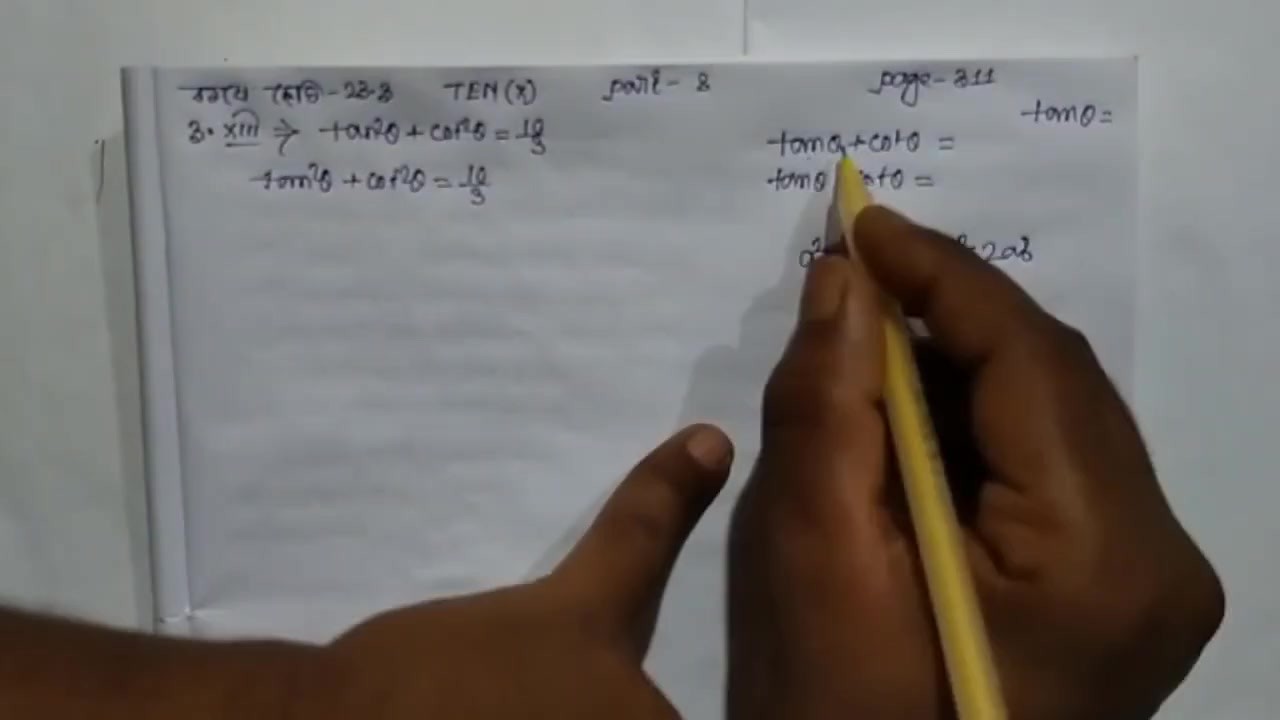 কষে দেখি - 23.3 TEN (X) part - 3 page - 311
3. xiii ⇒ tan²θ + cot²θ = 10/3
tan²θ + cot²θ = 10/3
tanθ =
tanθ + cotθ =
tanθ cotθ =